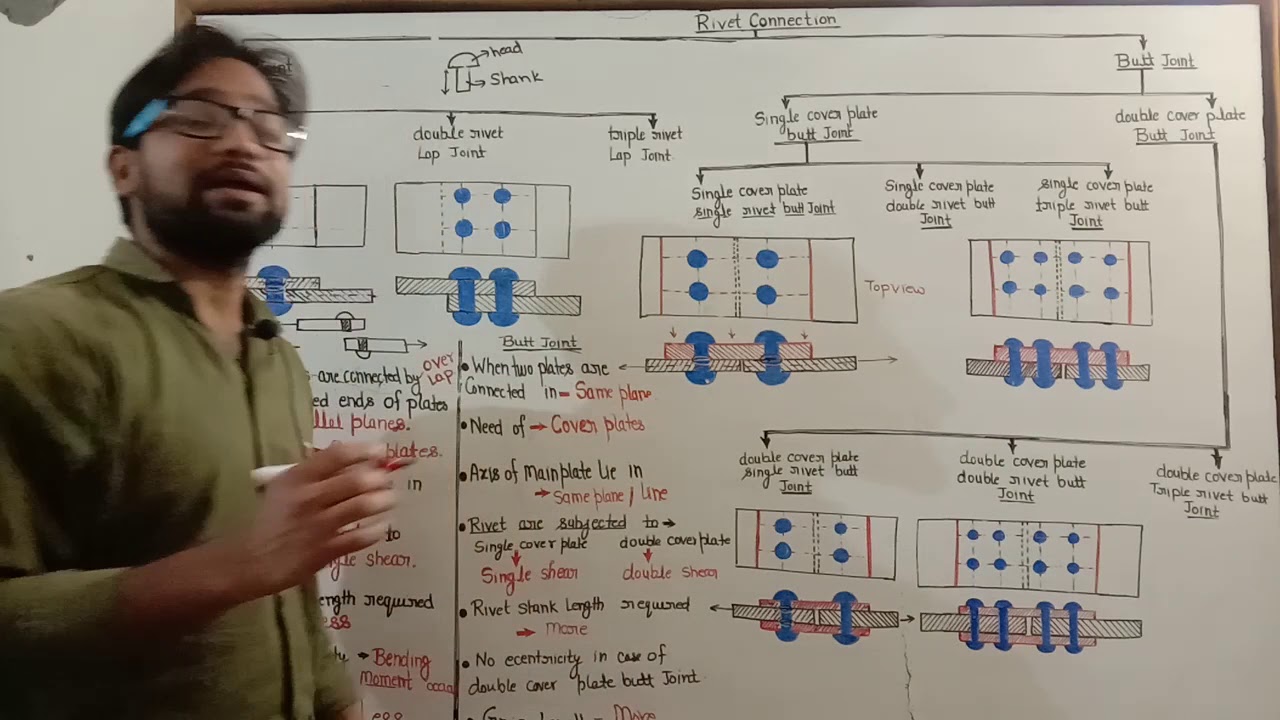 Rivet Connection
head
Shank
Butt Joint
double rivet
Lap Joint
triple rivet
Lap Joint
Single cover plate
butt Joint
double cover plate
Butt Joint
Single cover plate
single rivet butt Joint
Single cover plate
double rivet butt
Joint
single cover plate
triple rivet butt
Joint
Top view
Butt Joint
are connected by over
Lap
ed ends of plates
planes.
plates.
in
to
shear.
ength required
Bending
Moment
Less
• When two plates are
Connected in - Same plane.
• Need of → Cover plates
• Axis of main plate lie in
→ Same plane / Line
• Rivet are subjected to →
Single cover plate double cover plate
Single shear double shear
• Rivet shank Length required
→ More
• No ecentricity in case of
double cover plate butt Joint.
More
double cover plate
single rivet butt
Joint
double cover plate
double rivet butt
Joint
double cover plate
Triple rivet butt
Joint